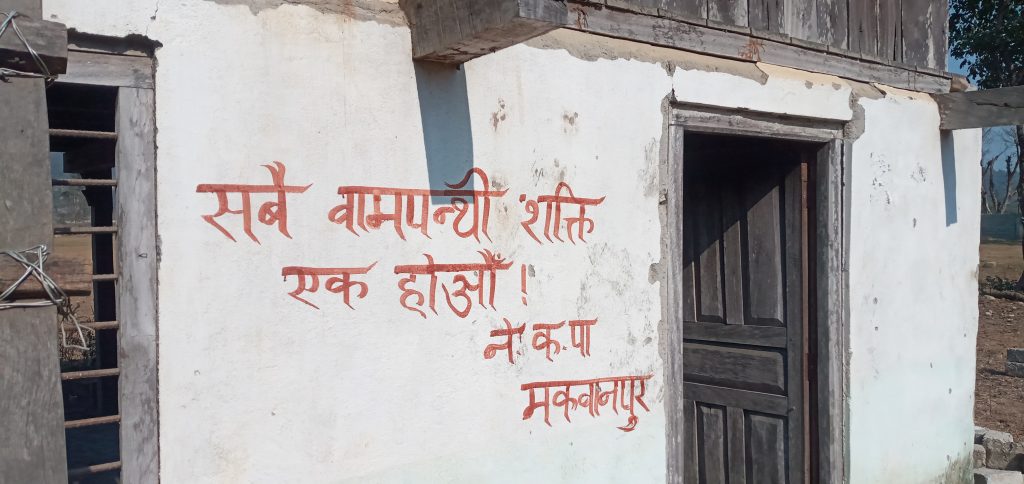 सबै वामपन्थी शक्ति
एक होऔँ !
ने क.पा
मकवानपुर